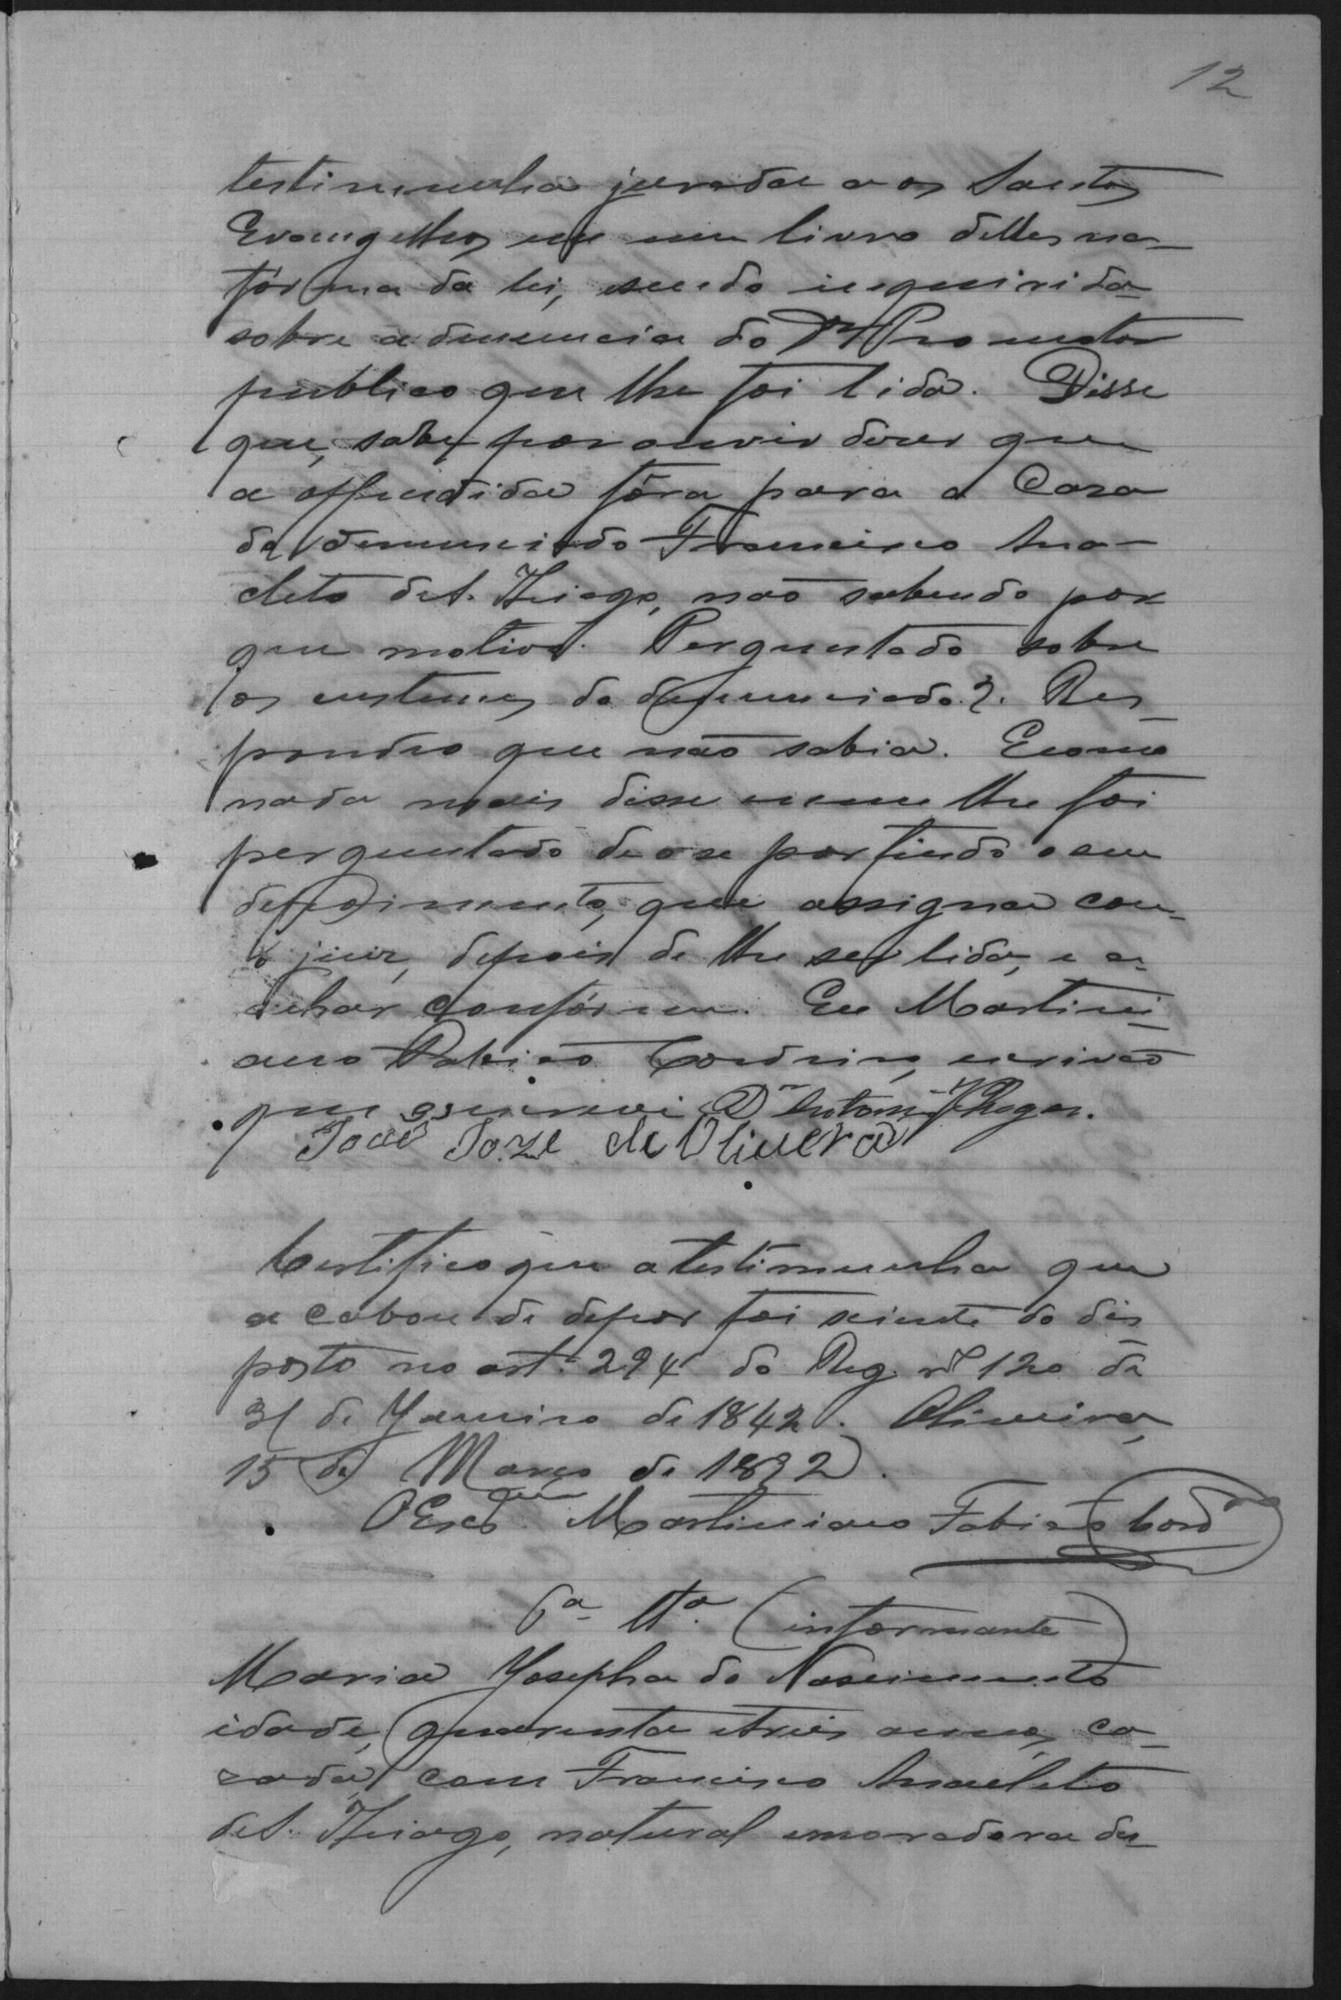 12
testimunha jurada aos Santos
Evangelhos em um livro delles na
fórma da lei, sendo inquirida
sobre a denuncia do Dr Promotor
publico que lhe foi lida. Disse
que, sabe por ouvir diser que
a offendida fôra para a Casa
do denunciado Francisco Ana-
cleto de S. Thiago, não sabendo por
que motivo. Perguntado sobre
os custumes do denunciado?. Res-
pondeo que não sabia. E como
nada mais disse e nem lhe foi
perguntado deo-se por findo o seu
depoimento, que assigna com
o juiz, depois de lhe ser lido, e a-
char confórme. Eu Martini-
ano Fabião Cordeiro, escrivão
que escrevi Dr Antonio
João Joze de Oliveira
Certifico que a testimunha que
acabou de depor foi sciente do dis
posto no art. 294 do Reg. nº 120 de
31 de Janeiro de 1842. Oliveira,
15 de Março de 1892.
O Escram Martiniano Fabião Cordro
6a tta. (informante)
Maria Josepha do Nascimento
idade, quarenta e tres annos, ca-
zada com Francisco Anacleto
de S. Thiago, natural e moradora de